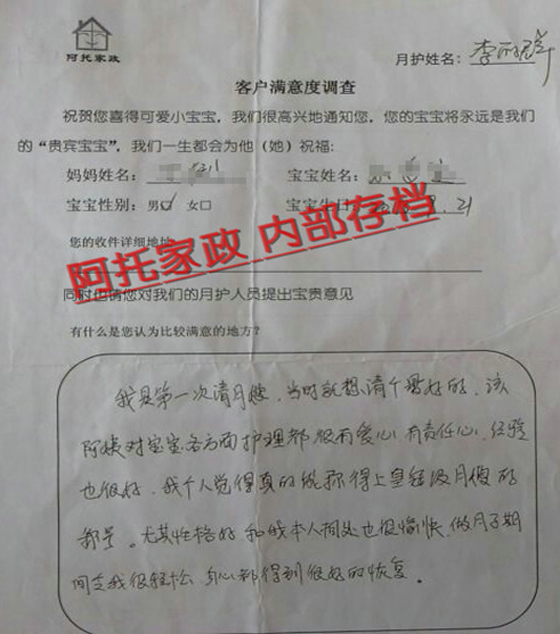 阿托家政
月护姓名：李丽群
客户满意度调查
祝贺您喜得可爱小宝宝，我们很高兴地通知您，您的宝宝将永远是我们
的“贵宾宝宝”，我们一生都会为他（她）祝福：
妈妈姓名： 宝宝姓名：
宝宝性别：男☑ 女□ 宝宝生日： 21
您的收件详细地址
阿托家政 内部存档
同时也请您对我们的月护人员提出宝贵意见
有什么是您认为比较满意的地方？
我是第一次请月嫂，当时就想请个最好的，该
阿姨对宝宝各方面护理都很有爱心，有责任心，经验
也很好，我个人觉得真的能称得上皇级月嫂的
称号。尤其性格好，和我本人相处也很愉快，做月子期
间变我很轻松，身心都得到很好的恢复。